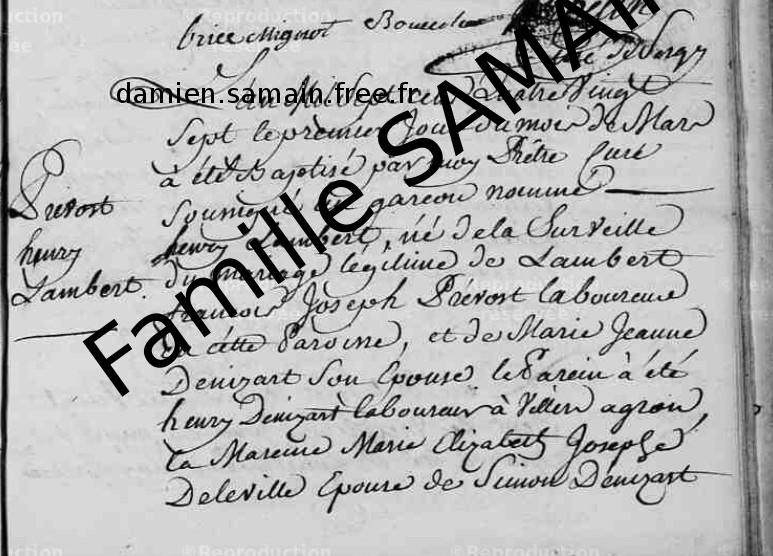 brice Mignot Bouvelu
Curé de Vergy
damien.samain.free.fr
Famille SAMAIN
L'an Mil Sept cens Quatre Vingt
Sept le premier Jour du mois de Mars
à été Baptisé par moy Prêtre Curé
Soussigné un garcon nommé
henry Lambert, né de la Surveille
du mariage légitime de Lambert
francois Joseph Prévost laboureur
de cette Paroisse, et de Marie Jeanne
Denizart Son Epouse le Parein à été
henry Denizart laboureur à Villers agron,
La Mareine Marie Elizabeth Josephe
Deleville Epouse de Simon Denizart
Prévost
henry
Lambert.